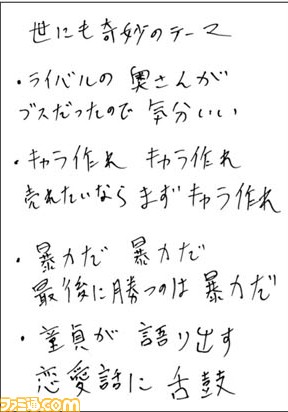 世にも奇妙のテーマ
・ライバルの 奥さんが
ブスだったので 気分いい
・キャラ作れ キャラ作れ
売れたいなら まずキャラ作れ
・暴力だ 暴力だ
最後に勝つのは 暴力だ
・童貞が 語り出す
恋愛話に 舌鼓
ファミ通.com